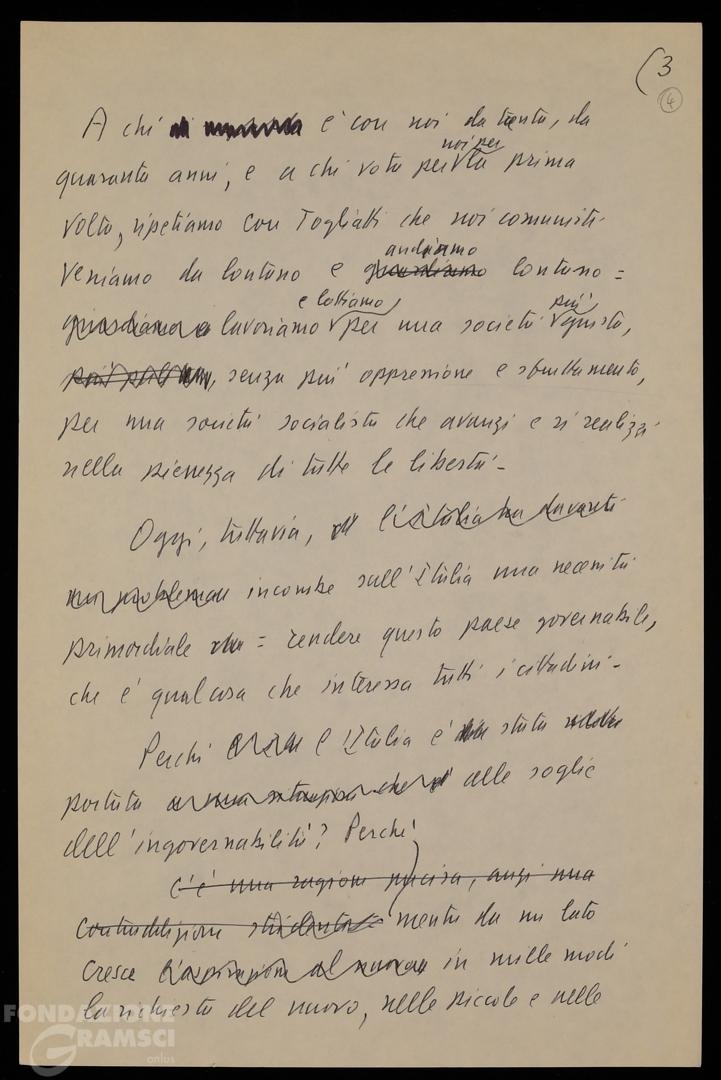 (3
4
A chi è con noi da trenta, da
noi per
quaranta anni, e a chi vota per la prima
volta, ripetiamo con Togliatti che noi comunisti
andiamo
veniamo da lontano e guardiamo lontano =
e lottiamo più
guardiamo e lavoriamo per una società giusta,
senza più oppressione e sfruttamento,
per una società socialista che avanzi e si realizzi
nella pienezza di tutte le libertà -
Oggi, tuttavia, l'Italia ha davanti
un problema incombe sull'Italia una necessità
primordiale = rendere questo paese governabile,
che è qualcosa che interessa tutti i cittadini -
Perché l'Italia è stata
portata alle soglie
dell'ingovernabilità? Perché,
c'è una ragione precisa, anzi una
contraddizione stridente mentre da un lato
cresce l'aspirazione al nuovo in mille modi
la richiesta del nuovo, nelle piccole e nelle
FONDAZIONE
GRAMSCI
onlus